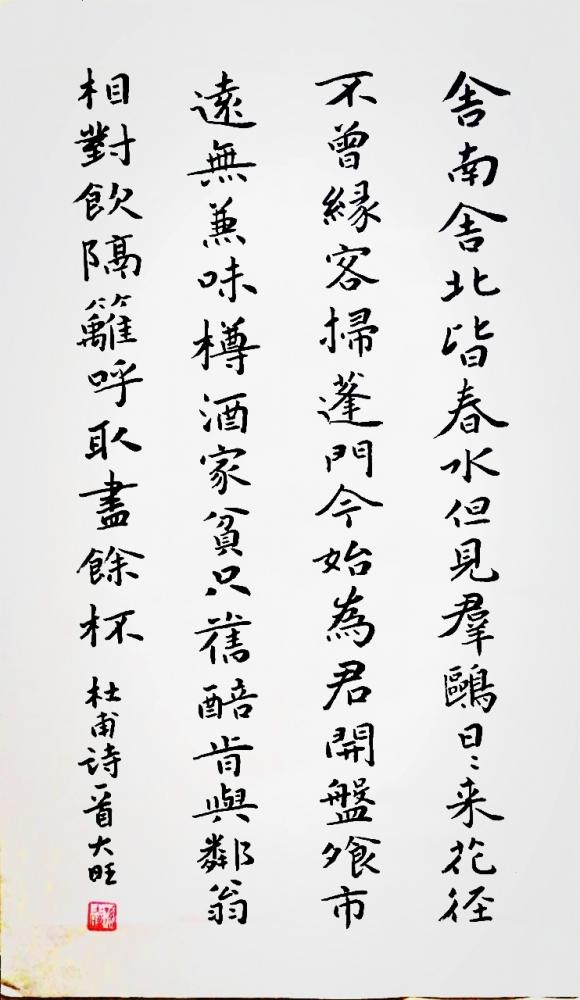 舍南舍北皆春水但見羣鷗日〻来花径
不曾緣客掃蓬門今始為君開盤飧市
遠無兼味樽酒家貧只舊醅肯與鄰翁
相對飲隔籬呼取盡餘杯
杜甫诗一首大旺